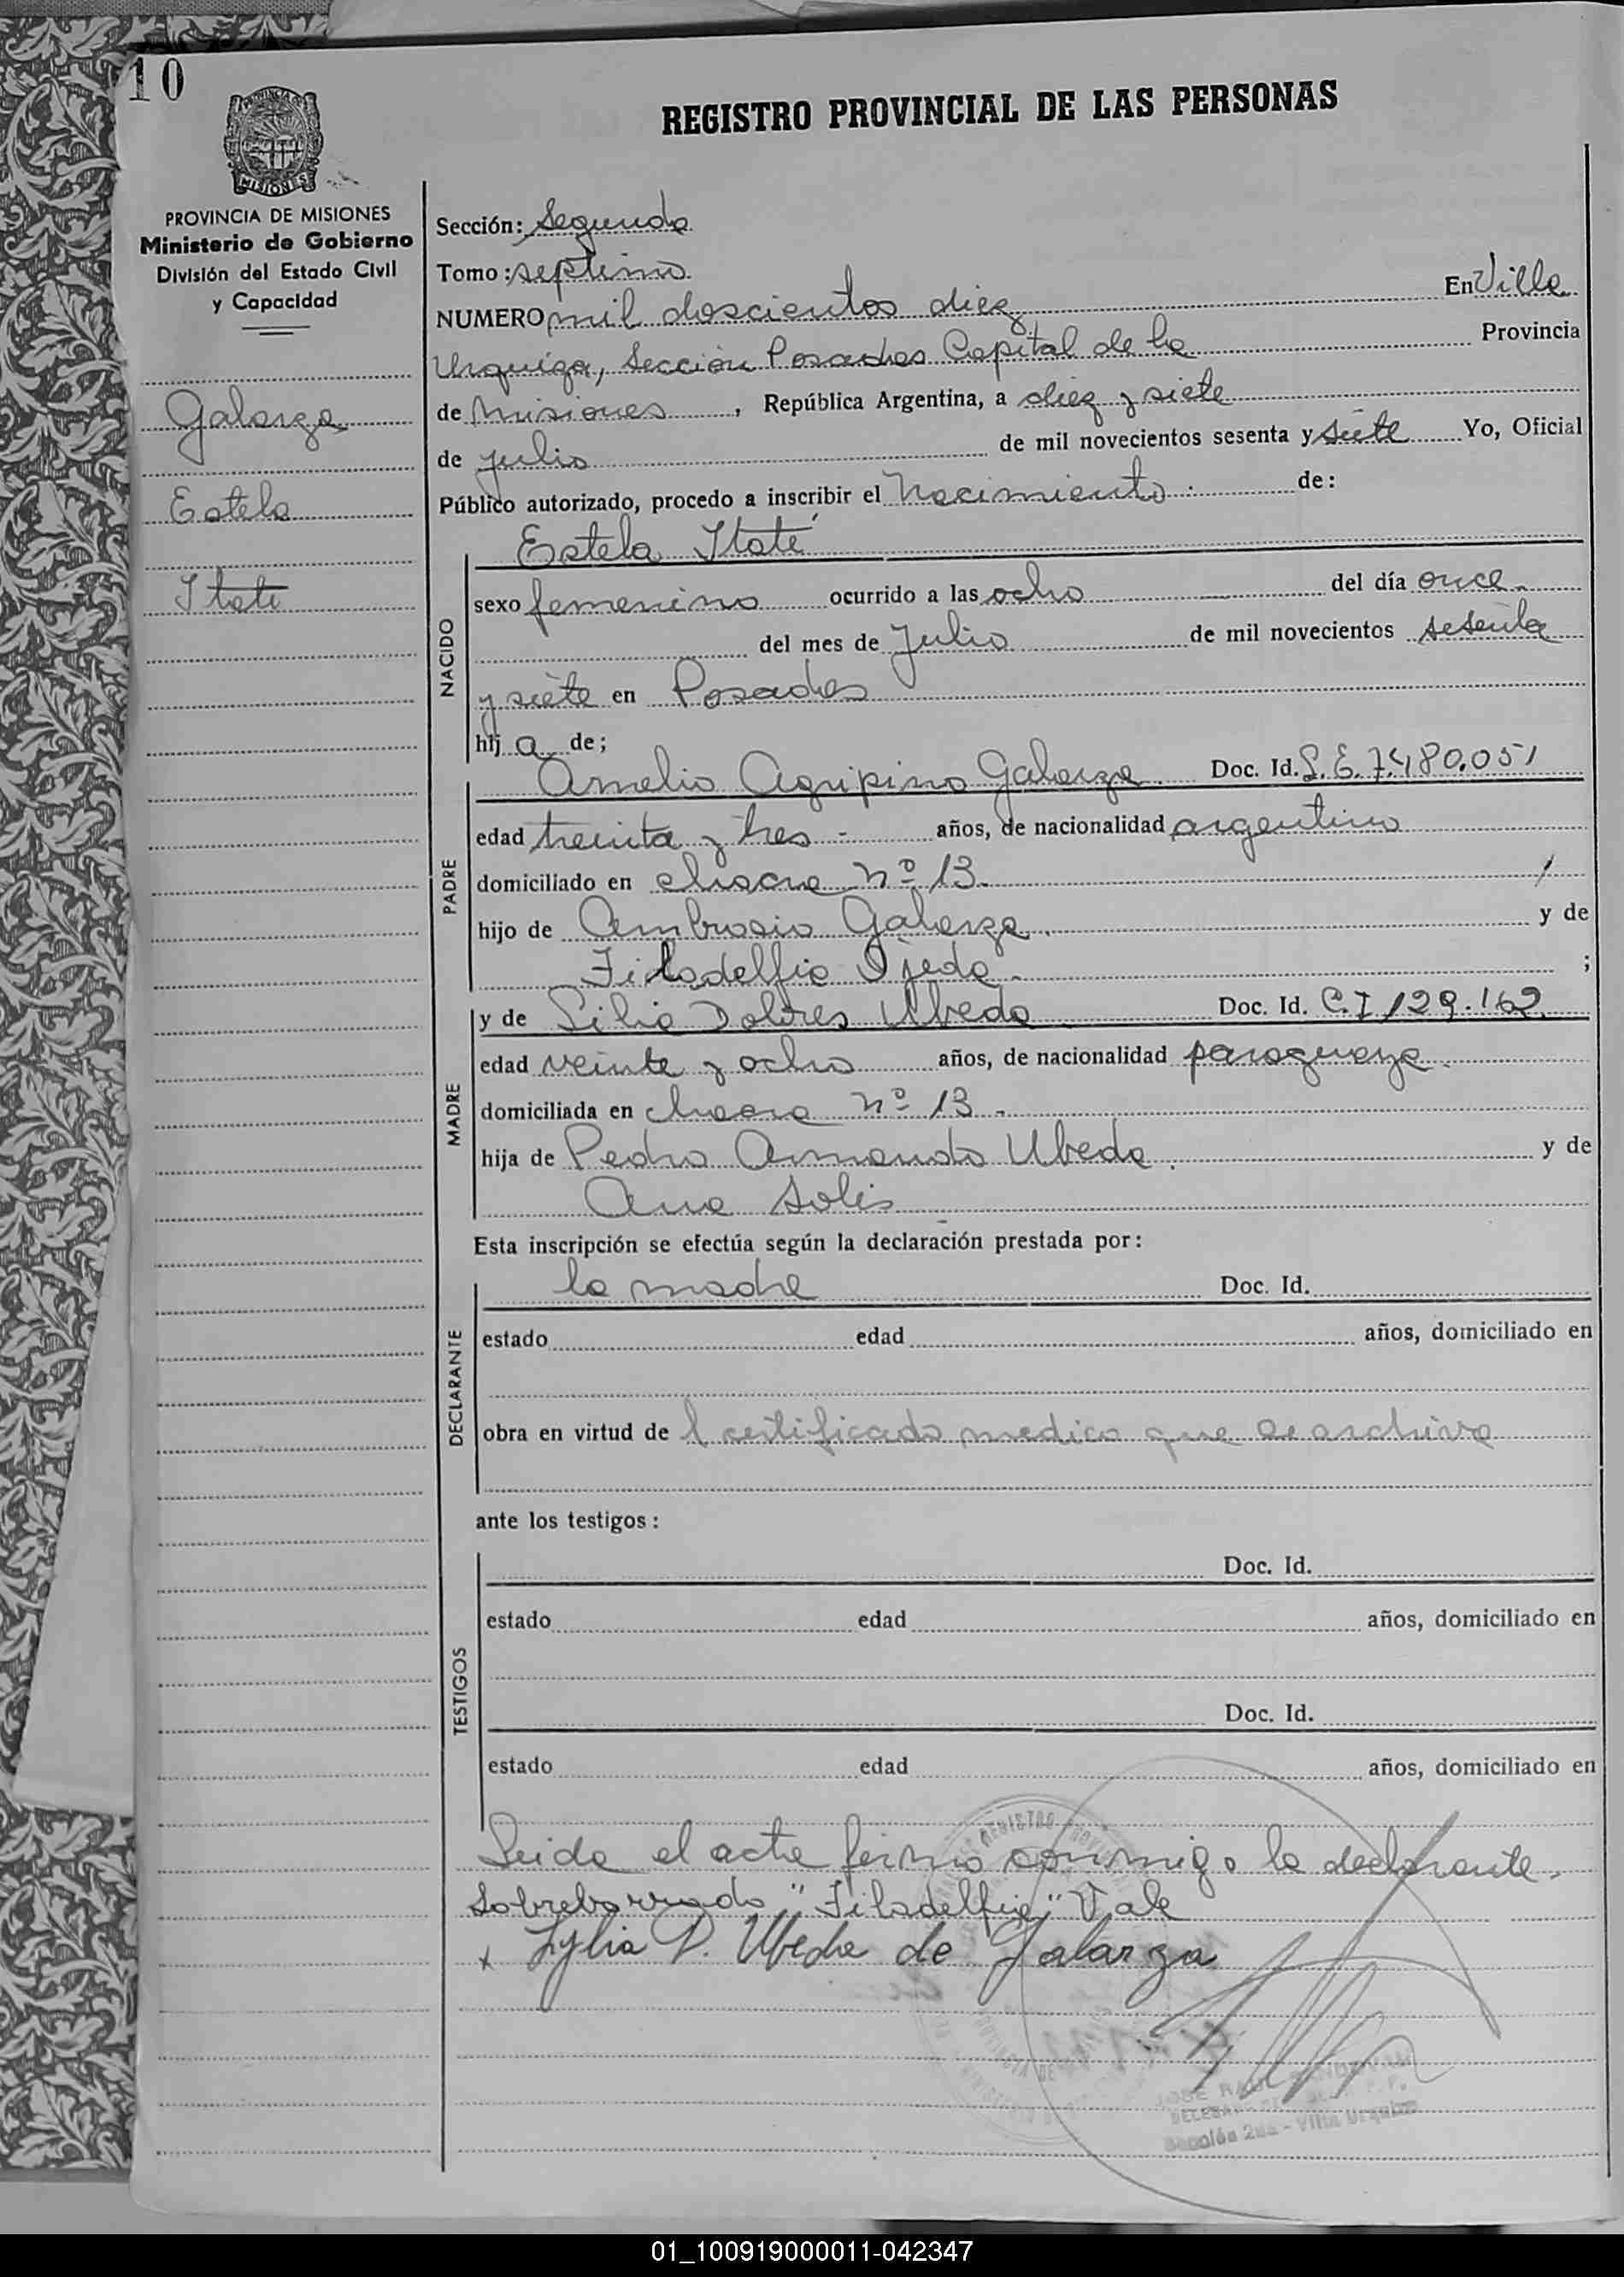 10
REGISTRO PROVINCIAL DE LAS PERSONAS
MISIONES
PROVINCIA DE MISIONES
Ministerio de Gobierno
División del Estado Civil
y Capacidad
Galarza
Estela
Itatí
Sección: Segunda
Tomo: septimo
NUMERO mil doscientos diez En Villa
Urquiza, Sección Posadas Capital de la Provincia
de Misiones, República Argentina, a diez y siete
de julio de mil novecientos sesenta y siete Yo, Oficial
Público autorizado, procedo a inscribir el Nacimiento de:
Estela Itatí
NACIDO
sexo femenino ocurrido a las ocho del día once
del mes de Julio de mil novecientos sesenta
y siete en Posadas
hij a de;
PADRE
Amelio Agripino Galarza Doc. Id. L.E. 7.480.051
edad treinta y tres años, de nacionalidad argentino
domiciliado en chacra nº 13
hijo de Ambrosio Galarza y de
Filadelfia Ojeda ;
MADRE
y de Lilia Dolores Ubeda Doc. Id. C.I 129.162
edad veinte y ocho años, de nacionalidad paraguaya
domiciliada en chacra nº 13
hija de Pedro Armando Ubeda y de
Ana Solis
Esta inscripción se efectúa según la declaración prestada por:
DECLARANTE
la madre Doc. Id.
estado edad años, domiciliado en
obra en virtud de l certificado medico que se archiva
ante los testigos:
TESTIGOS
Doc. Id.
estado edad años, domiciliado en
Doc. Id.
estado edad años, domiciliado en
Leida el acta firma conmigo la declarante.
Sobreborrado "Filadelfia" Vale
x Lylia D. Ubeda de Galarza
JOSE RAUL
Sección 2da - Villa Urquiza
01_100919000011-042347